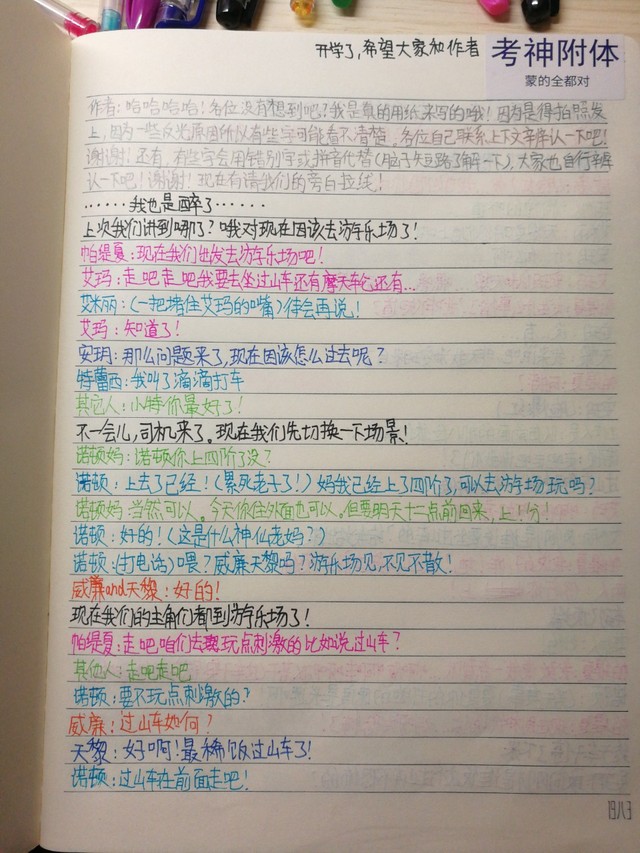 开学了,希望大家和作者
考神附体
蒙的全都对
作者:哈哈哈哈!各位没有想到吧?我是真的用纸来写的哦!因为是得拍照发
上,因为一些反光原因所以有些字可能看不清楚。各位自己联系上下文辛辛认一下吧!
谢谢!还有,有些字会用错别字或拼音代替(脑子短路了解一下),大家也自行辛辛
认一下吧!谢谢!现在有请我们的旁白拉线!
······我也是醉了······
上次我们讲到哪了?哦对现在因该去游乐场了!
帕缇夏:现在我们出发去游乐场吧!
艾玛:走吧走吧我要去坐过山车还有摩天轮还有...
艾米丽:(一把堵住艾玛的嘴)待会再说!
艾玛:知道了!
安玥:那么问题来了,现在因该怎么过去呢?
特蕾西:我叫了滴滴打车
其它人:小特你最好了!
不一会儿,司机来了。现在我们先切换一下场景!
诺顿妈:诺顿你上四阶了没?
诺顿:上去了已经!(累死老子了!)妈我已经上了四阶了,可以去游乐场玩吗?
诺顿妈:当然可以。今天你住外面也可以。但要明天十二点前回来,上!分!
诺顿:好的!(这是什么神仙老妈?)
诺顿:(打电话)喂?威廉天黎吗?游乐场见,不见不散!
威廉and天黎:好的!
现在我们的主角们都到游乐场了!
帕缇夏:走吧咱们去玩点刺激的比如说过山车?
其他人:走吧走吧
诺顿:要不玩点刺激的?
威廉:过山车如何?
天黎:好啊!最稀饭过山车了!
诺顿:过山车在前面走吧!